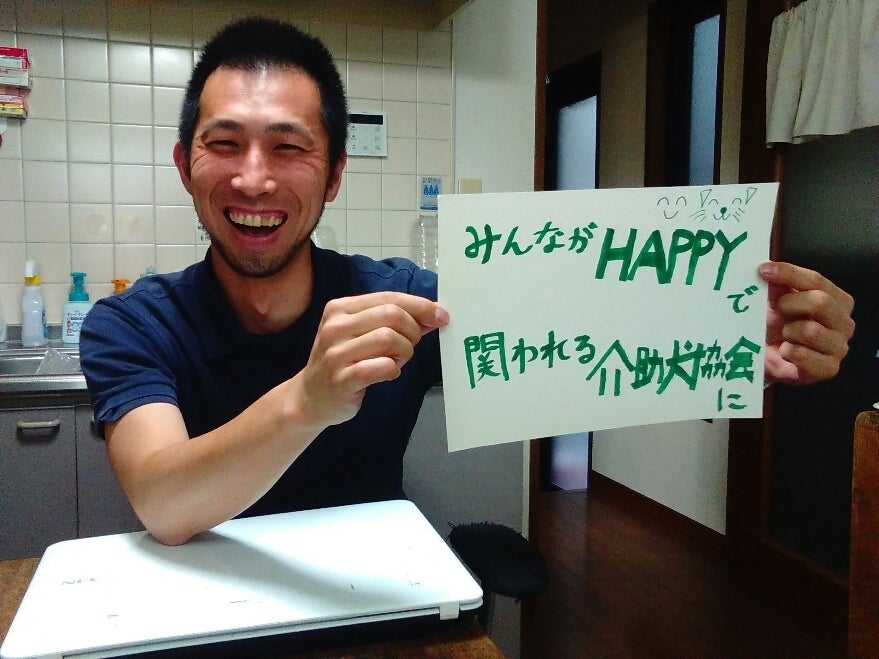 みんながHAPPYで
関われる介助犬協会に
NEC